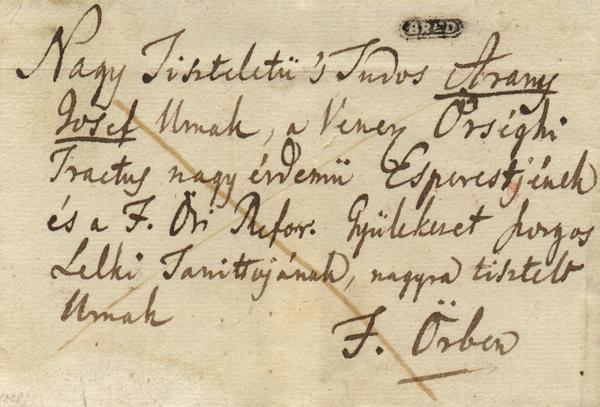 ARAD
Nagy Tiszteletü 's Tudos Arany
Josef Urnak, a Vener. Örséghi
Tractus nagy érdemü Esperestjének
és a F. Öri Refor. Gyülekezet szorgos
Lelki Tanittojának, nagyra tisztelt
Urnak
F. Örben